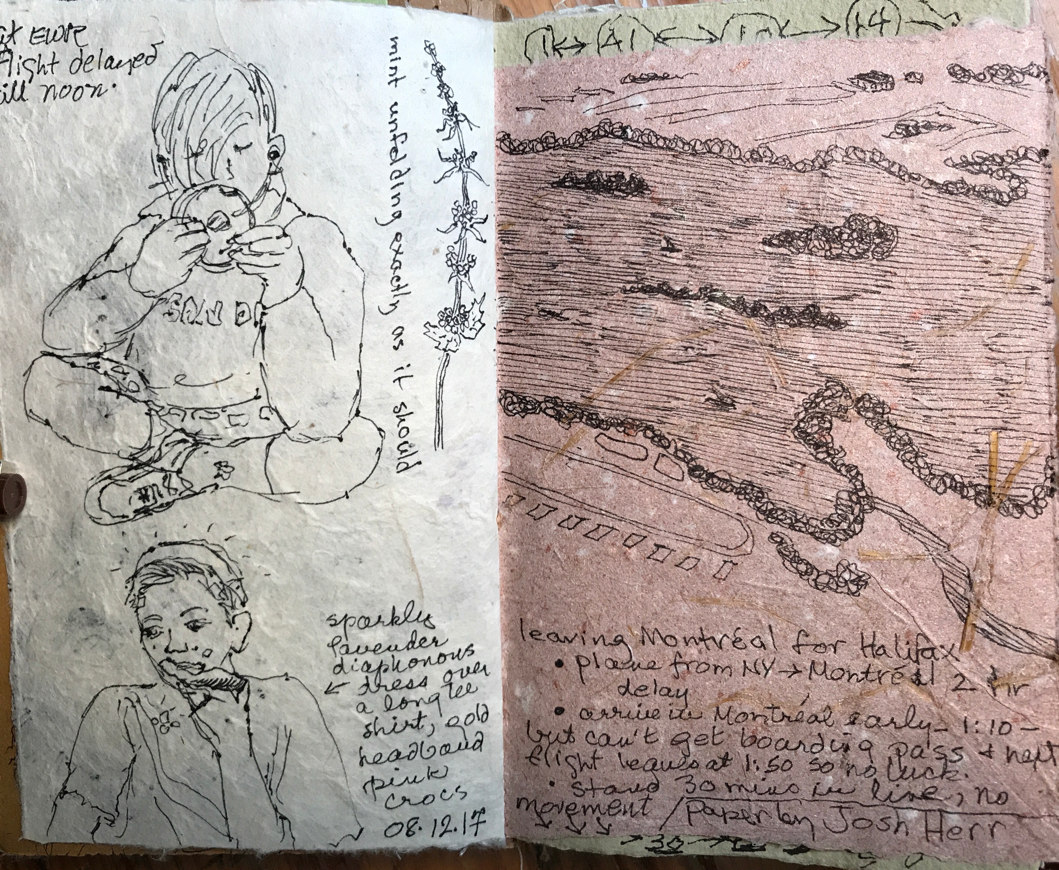 it EWR
flight delayed
till noon.
mint unfolding exactly as it should
sparkly
lavender
diaphonous
← dress over
a long tee
shirt, gold
headband
pink
crocs
08.12.17
leaving Montréal for Halifax
• plane from NY → Montréal 2 hr
delay
• arrive in Montréal early – 1:10 –
but can't get boarding pass + next
flight leaves at 1:50 so no luck.
• stand 30 mins in line, no
movement / paper by Josh Herr
30